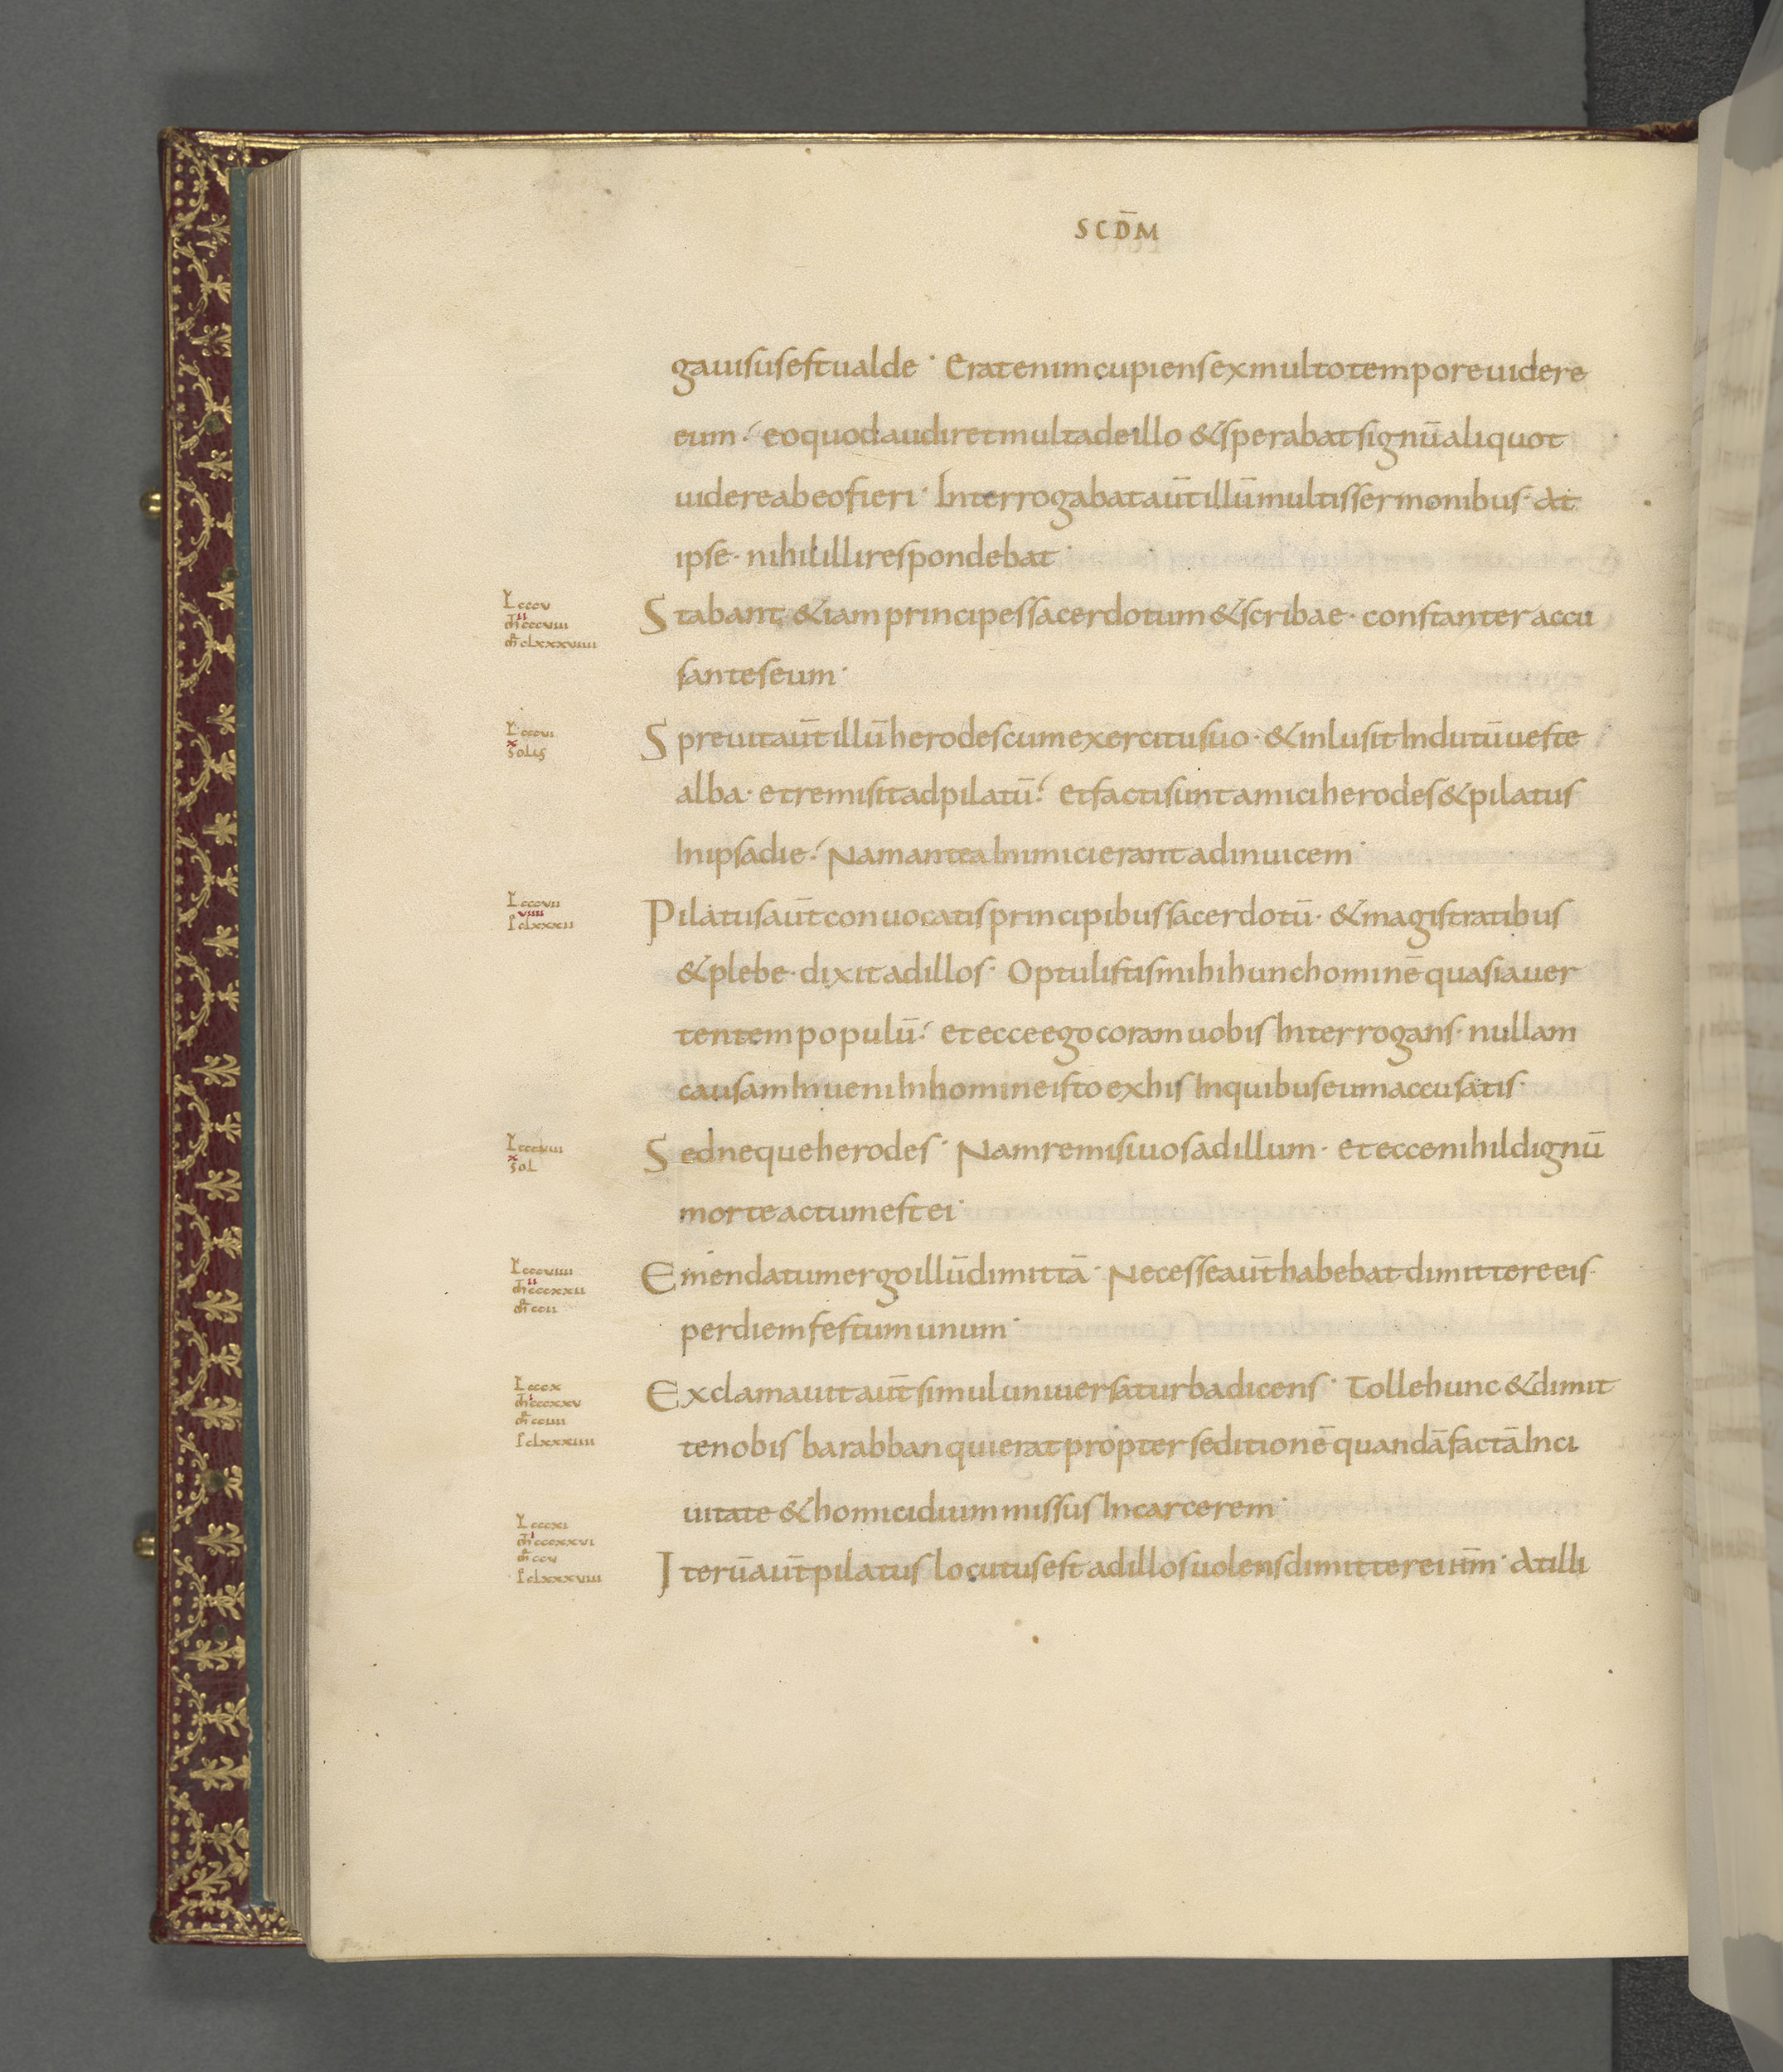 SCD̄M
gauisus est ualde · Erat enim cupiens ex multo tempore uidere
eum ·́ eo quod audiret multa de illo & sperabat signū aliquot
uidere ab eo fieri · Interrogabat aūt illū multis sermonibus · At
ipse · nihil illi respondebat ·
L cccv
ii
m̄ cccviii
mr̄ clxxxviiii
Stabant & iam principes sacerdotum & scribae · constanter accu
santes eum ·
L cccvi
x
solus
Spreuit aūt illū herodes cum exercitu suo · & inlusit Indutū ueste
alba · et remisit ad pilatū ·́ et facti sunt amici herodes & pilatus
In ipsa die ·́ Nam antea Inimici erant ad inuicem ·
L cccvii
viiii
I clxxxii
Pilatus aūt conuocatis principibus sacerdotū · & magistratibus
& plebe · dixit ad illos · Optulistis mihi hunc hominē quasi auer
tentem populū ·́ et ecce ego coram uobis Interrogans · nullam
causam Inueni In homine isto ex his In quibus eum accusatis ·
L cccviii
x
sol
Sed neque herodes · Nam remisi uos ad illum · et ecce nihil dignū
morte actum est ei ·
L cccviiii
ii
m̄ cccxxii
mr̄ ccii
Emendatum ergo illū dimittā · Necesse aūt habebat dimittere eis ·
per diem festum unum ·
L cccx
i
m̄ cccxxv
mr̄ cciiii
I clxxxiiii
Exclamauit aūt simul uniuersa turba dicens · Tolle hunc & dimit
te nobis barabban qui erat propter seditionē quandā factā In ci
uitate & homicidium missus In carcerem ·
L cccxi
i
m̄ cccxxvi
mr̄ ccv
I clxxxviii
Iterū aūt pilatus locutus est ad illos uolens dimittere ihm̄ · At illi